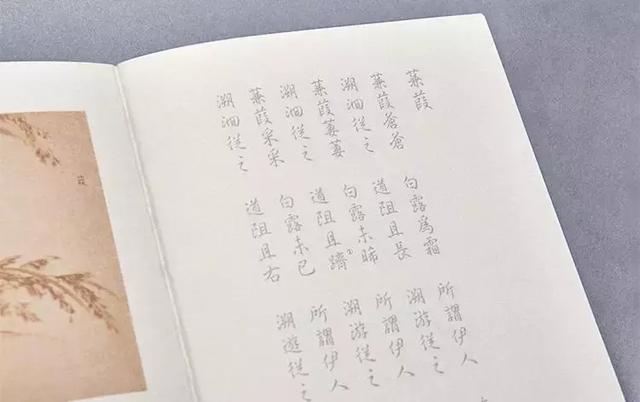 蒹葭
蒹葭蒼蒼 白露爲霜 所謂伊人
溯洄從之 道阻且長 溯游從之
蒹葭萋萋 白露未晞 所謂伊人
溯洄從之 道阻且躋 溯游從之
蒹葭采采 白露未已 所謂伊人
溯洄從之 道阻且右 溯遊從之
葭